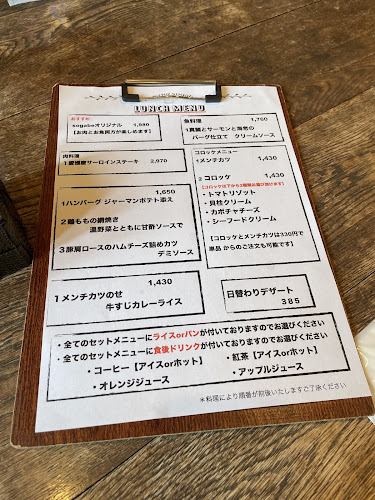 LUNCH MENU
おすすめ
sogaboオリジナル 1,980
【お肉とお魚両方が楽しめます】
魚料理 1,760
1真鯛とサーモンと海老の
バーグ仕立て クリームソース
肉料理
1愛媛産サーロインステーキ 2,970
1,650
1ハンバーグ ジャーマンポテト添え
2鶏ももの網焼き
温野菜とともに甘酢ソースで
3豚肩ロースのハムチーズ詰めカツ
デミソース
コロッケメニュー
1メンチカツ 1,430
2コロッケ 1,430
【コロッケは下から2種類お選び頂けます】
・トマトリゾット
・貝柱クリーム
・カボチャチーズ
・シーフードクリーム
【コロッケとメンチカツは330円で
単品からのご注文も可能です】
1,430
1メンチカツのせ
牛すじカレーライス
日替わりデザート
385
・全てのセットメニューにライスorパンが付いておりますのでお選びください
・全てのセットメニューに食後ドリンクが付いておりますのでお選びください
・コーヒー【アイスorホット】 ・紅茶【アイスorホット】
・オレンジジュース ・アップルジュース
＊料理により順番が前後いたしますご了承ください